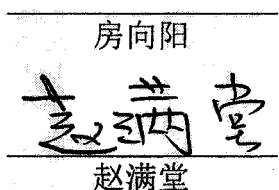 房向阳
赵满堂
赵满堂